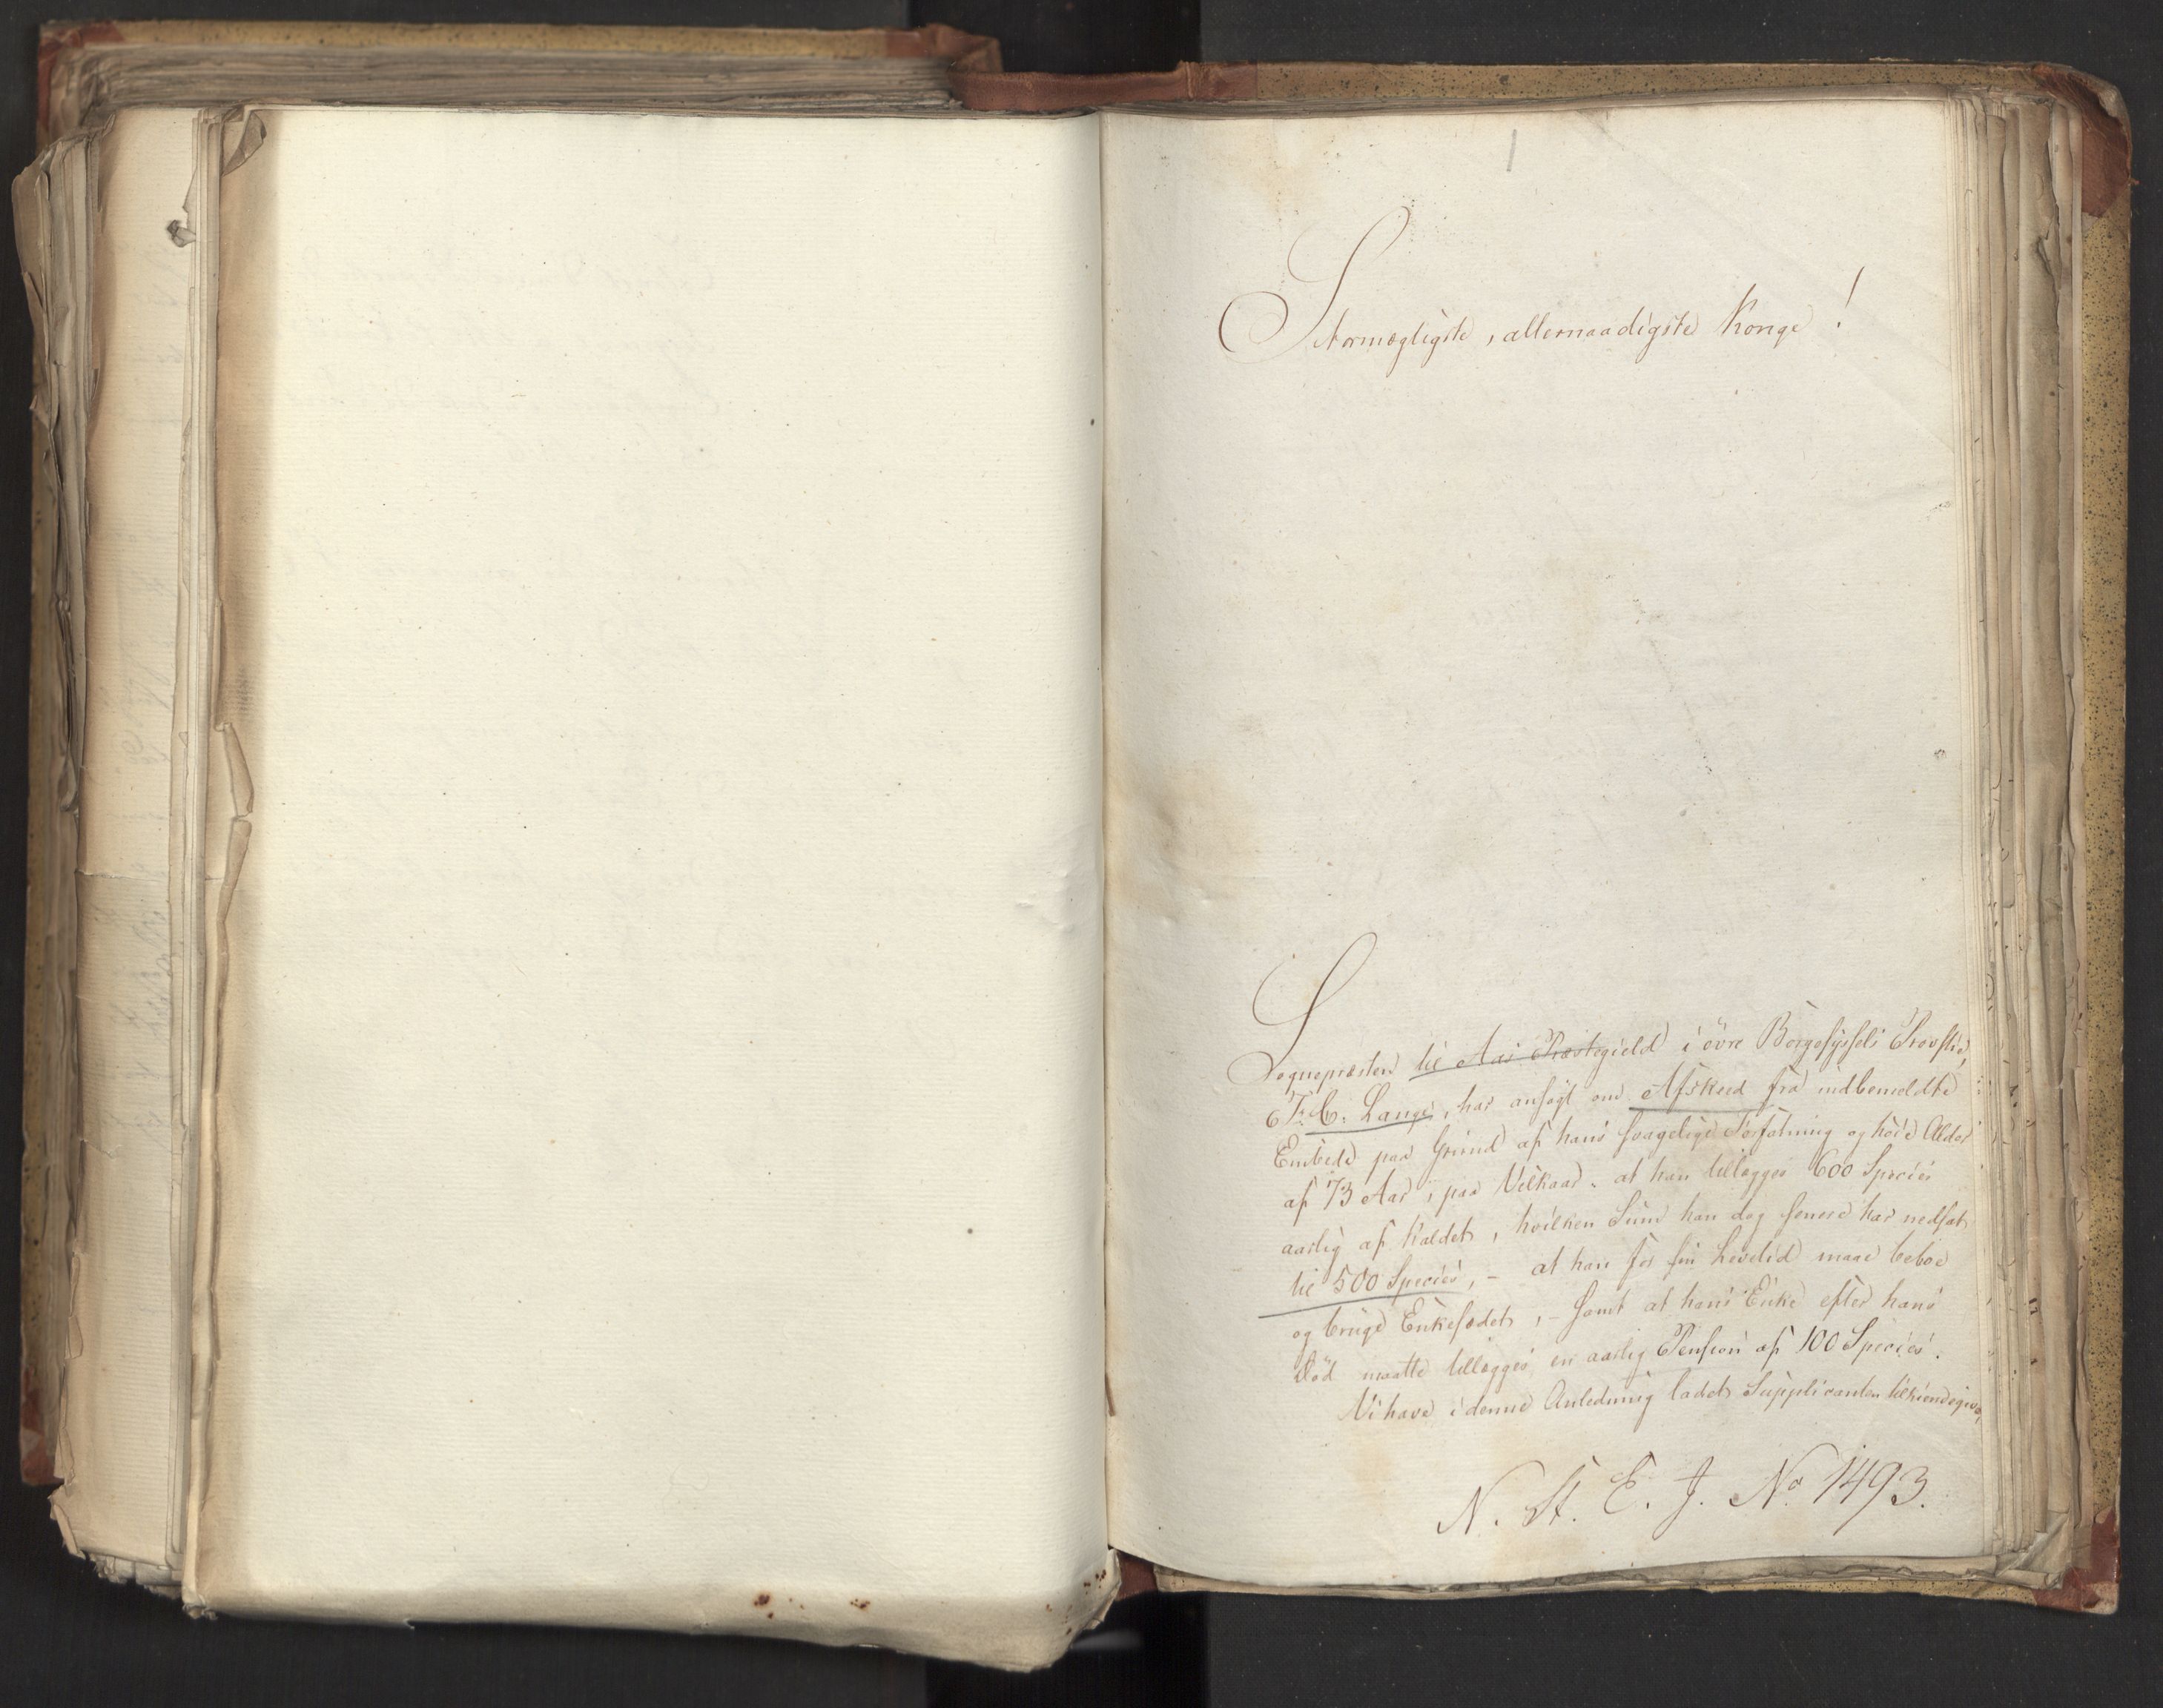 1
Stormægtigste, allernaadigste Konge!
Sognepræsten til Aas Præstegield i övre Borgesyssels Provstie,
F. C. Lange, har ansøgt om Afskeed fra indbemeldte
Embede paa Grund af hans svagelige Forfatning og høie Alder
af 73 Aar, paa Vilkaar: at han tillægges 600 Species
aarlig af Kaldet, hvilken Sum han dog senere har nedsat
til 500 Species, - at han for sin Levetid maae beboe
og bruge Enkesædet, - samt at hans Enke efter hans
Død maatte tillægges en aarlig Pension af 100 Species.
Vi have i denne Anledning ladet Supplicanten tilkiendegive,
N. St. E. J. No 1493.